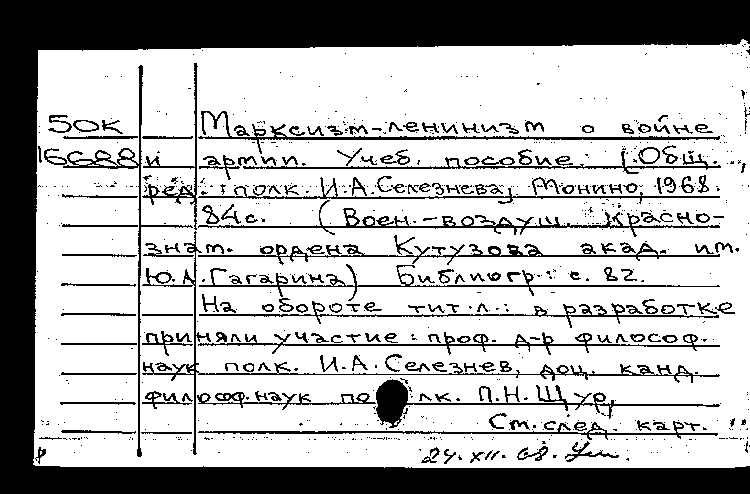 50К Марксизм-ленинизм о войне
16688 и армии. Учеб. пособие. (Общ.
ред.: полк. И.А.Селезнева) Монино, 1968.
84с. (Воен.-воздуш. Красно-
знам. ордена Кутузова акад. им.
Ю.А.Гагарина) Библиогр.: с. 82.
На обороте тит.л.: в разработке
приняли участие: проф. д-р философ.
наук полк. И.А.Селезнев, доц. канд.
философ.наук полк. П.Н.Щур,
См.след. карт.
24.XII.68.